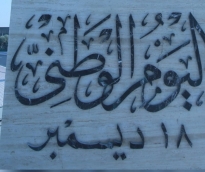 اليوم الوطني
١٨ ديسمبر